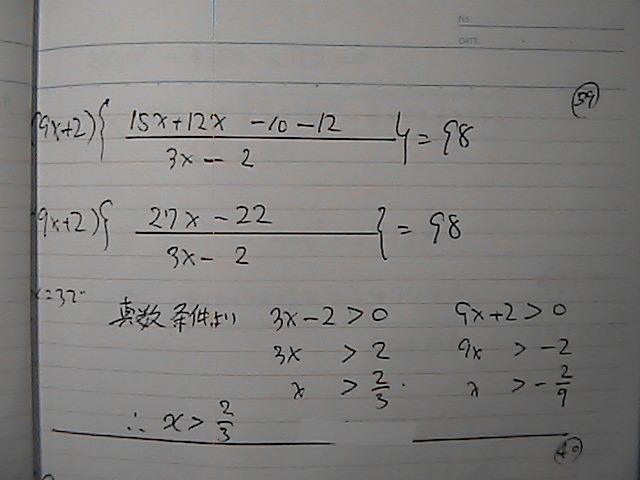 NO.
DATE
(39)
(9x+2){ (15x+12x -10-12)/(3x-2) } = 98
(9x+2){ (27x-22)/(3x-2) } = 98
真数条件より 3x-2>0 9x+2>0
3x >2 9x >-2
x >2/3. x >-2/9
∴ x>2/3
(40)